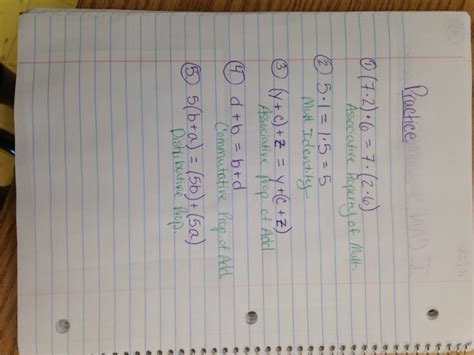 Practice
① (7·2)·6 = 7·(2·6)
Associative Property of Mult.
② 5·1 = 1·5 = 5
Mult Identity
③ (y+c)+z = y+(c+z)
Associative prop of Add
④ d+b = b+d
Commutative Prop of Add.
⑤ 5(b+a) = (5b)+(5a)
Distributive Prop.